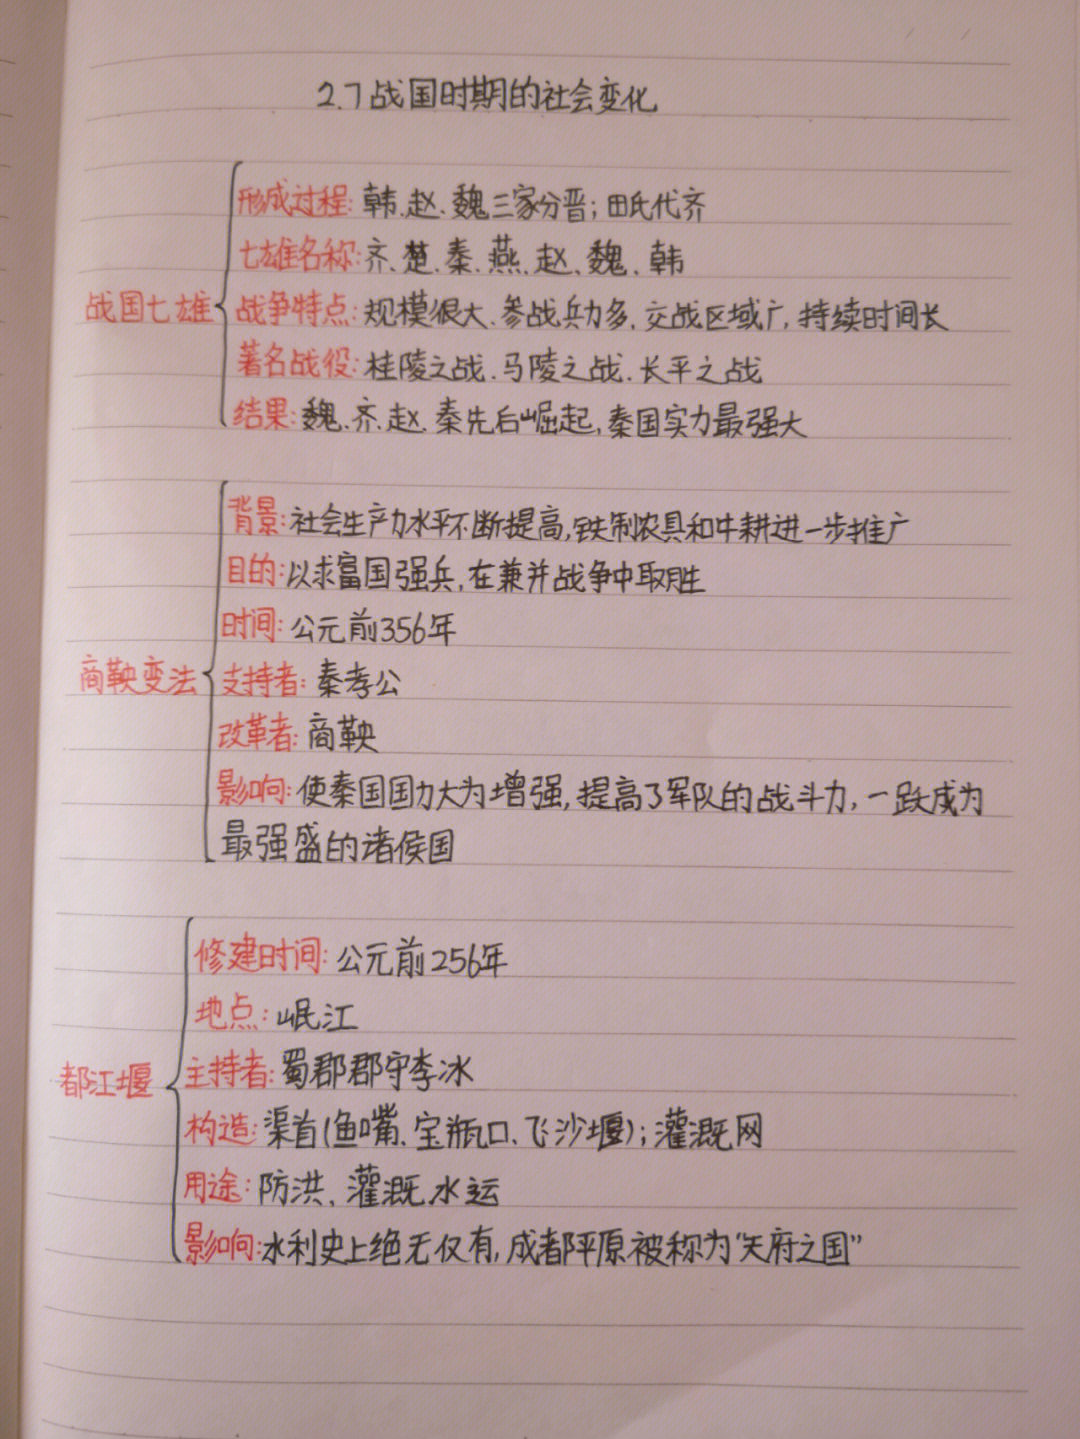 2.7 战国时期的社会变化
形成过程: 韩、赵、魏三家分晋; 田氏代齐
七雄名称: 齐、楚、秦、燕、赵、魏、韩
战国七雄
战争特点: 规模很大、参战兵力多, 交战区域广, 持续时间长
著名战役: 桂陵之战、马陵之战、长平之战
结果: 魏、齐、赵、秦先后崛起, 秦国实力最强大
背景: 社会生产力水平不断提高, 铁制农具和牛耕进一步推广
目的: 以求富国强兵, 在兼并战争中取胜
时间: 公元前356年
商鞅变法
支持者: 秦孝公
改革者: 商鞅
影响: 使秦国国力大为增强, 提高了军队的战斗力, 一跃成为
最强盛的诸侯国
修建时间: 公元前256年
地点: 岷江
都江堰
主持者: 蜀郡郡守李冰
构造: 渠首(鱼嘴、宝瓶口、飞沙堰); 灌溉网
用途: 防洪、灌溉、水运
影响: 水利史上绝无仅有, 成都平原被称为“天府之国”